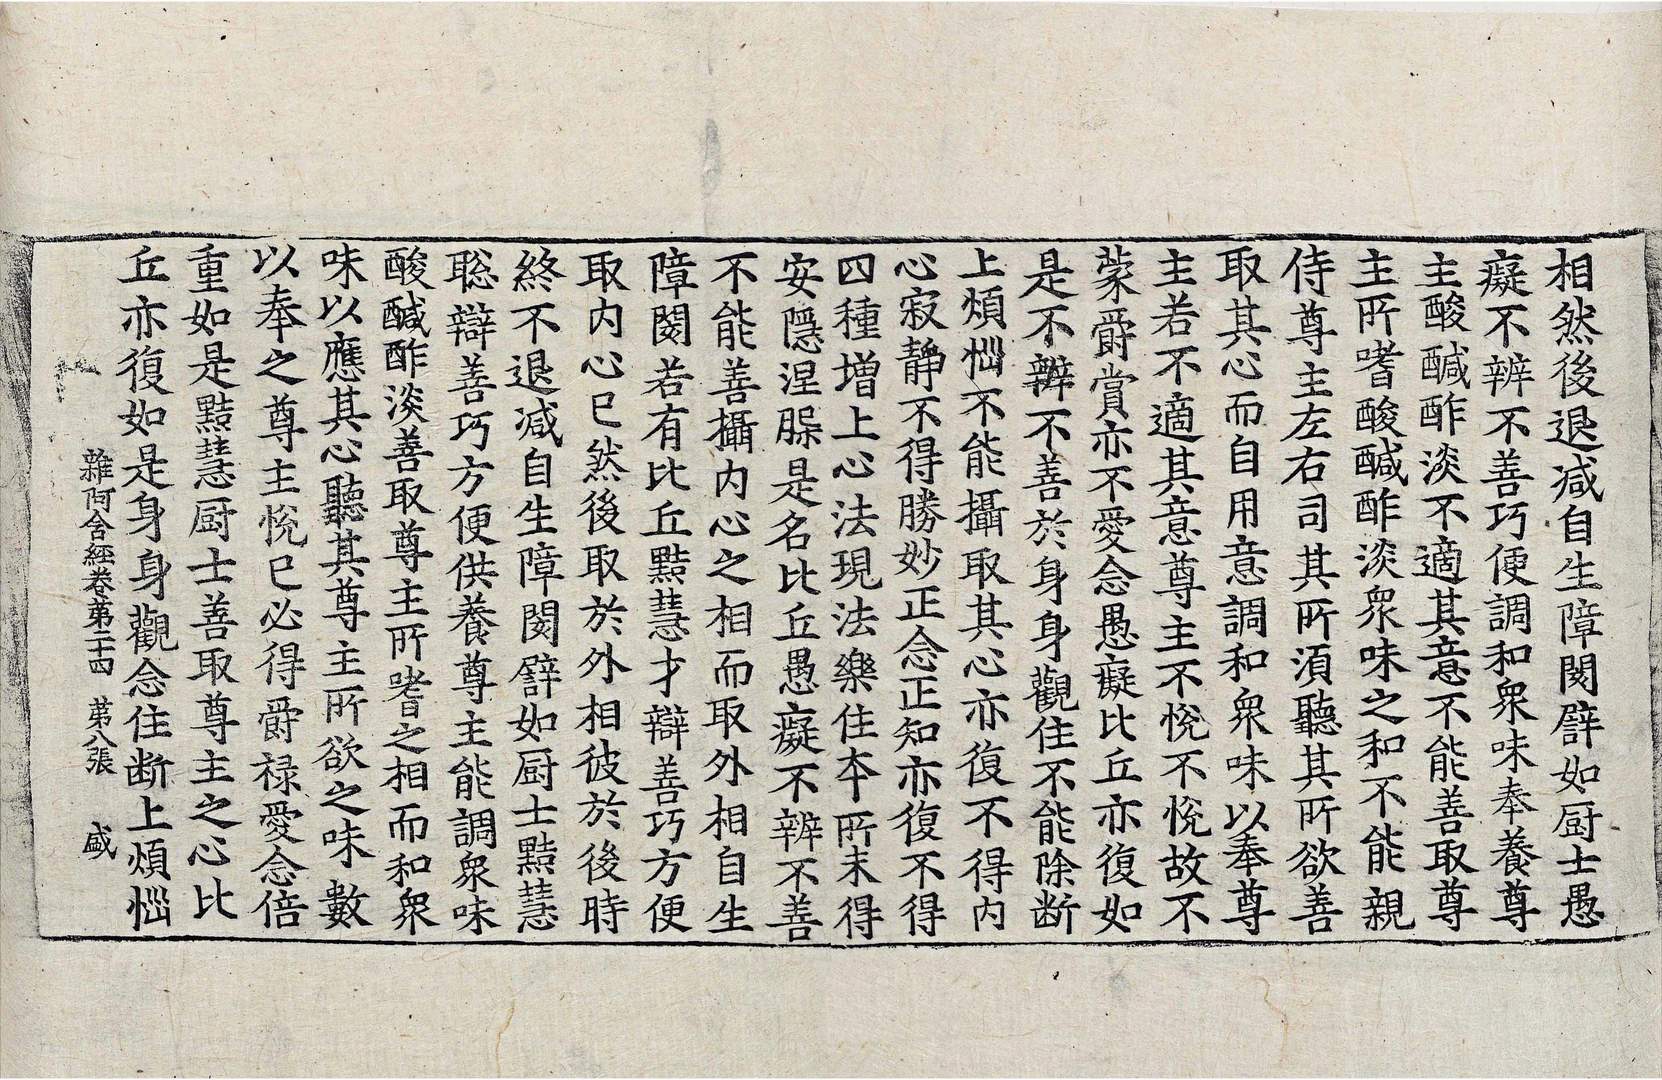 相然後退减自生障閡譬如厨士愚
癡不辨不善巧便調和衆味奉養尊
主酸醎酢淡不適其意不能善取尊
主所嗜酸醎酢淡衆味之和不能親
侍尊主左右司其所須聽其所欲善
取其心而自用意調和衆味以奉尊
主若不適其意尊主不悅不悅故不
蒙爵賞亦不愛念愚癡比丘亦復如
是不辨不善於身身觀住不能除斷
上煩惱不能攝取其心亦復不得內
心寂靜不得勝妙正念正知亦復不得
四種增上心法現法樂住本所未得
安隱涅槃是名比丘愚癡不辨不善
不能善攝內心之相而取外相自生
障閡若有比丘黠慧才辯善巧方便
取內心已然後取於外相彼於後時
終不退减自生障閡譬如厨士黠慧
聡辯善巧方便供養尊主能調衆味
酸醎酢淡善取尊主所嗜之相而和衆
味以應其心聽其尊主所欲之味數
以奉之尊主悅已必得爵禄愛念倍
重如是黠慧厨士善取尊主之心比
丘亦復如是身身觀念住断上煩惱
雜阿含經卷第二十四 第八張 盛